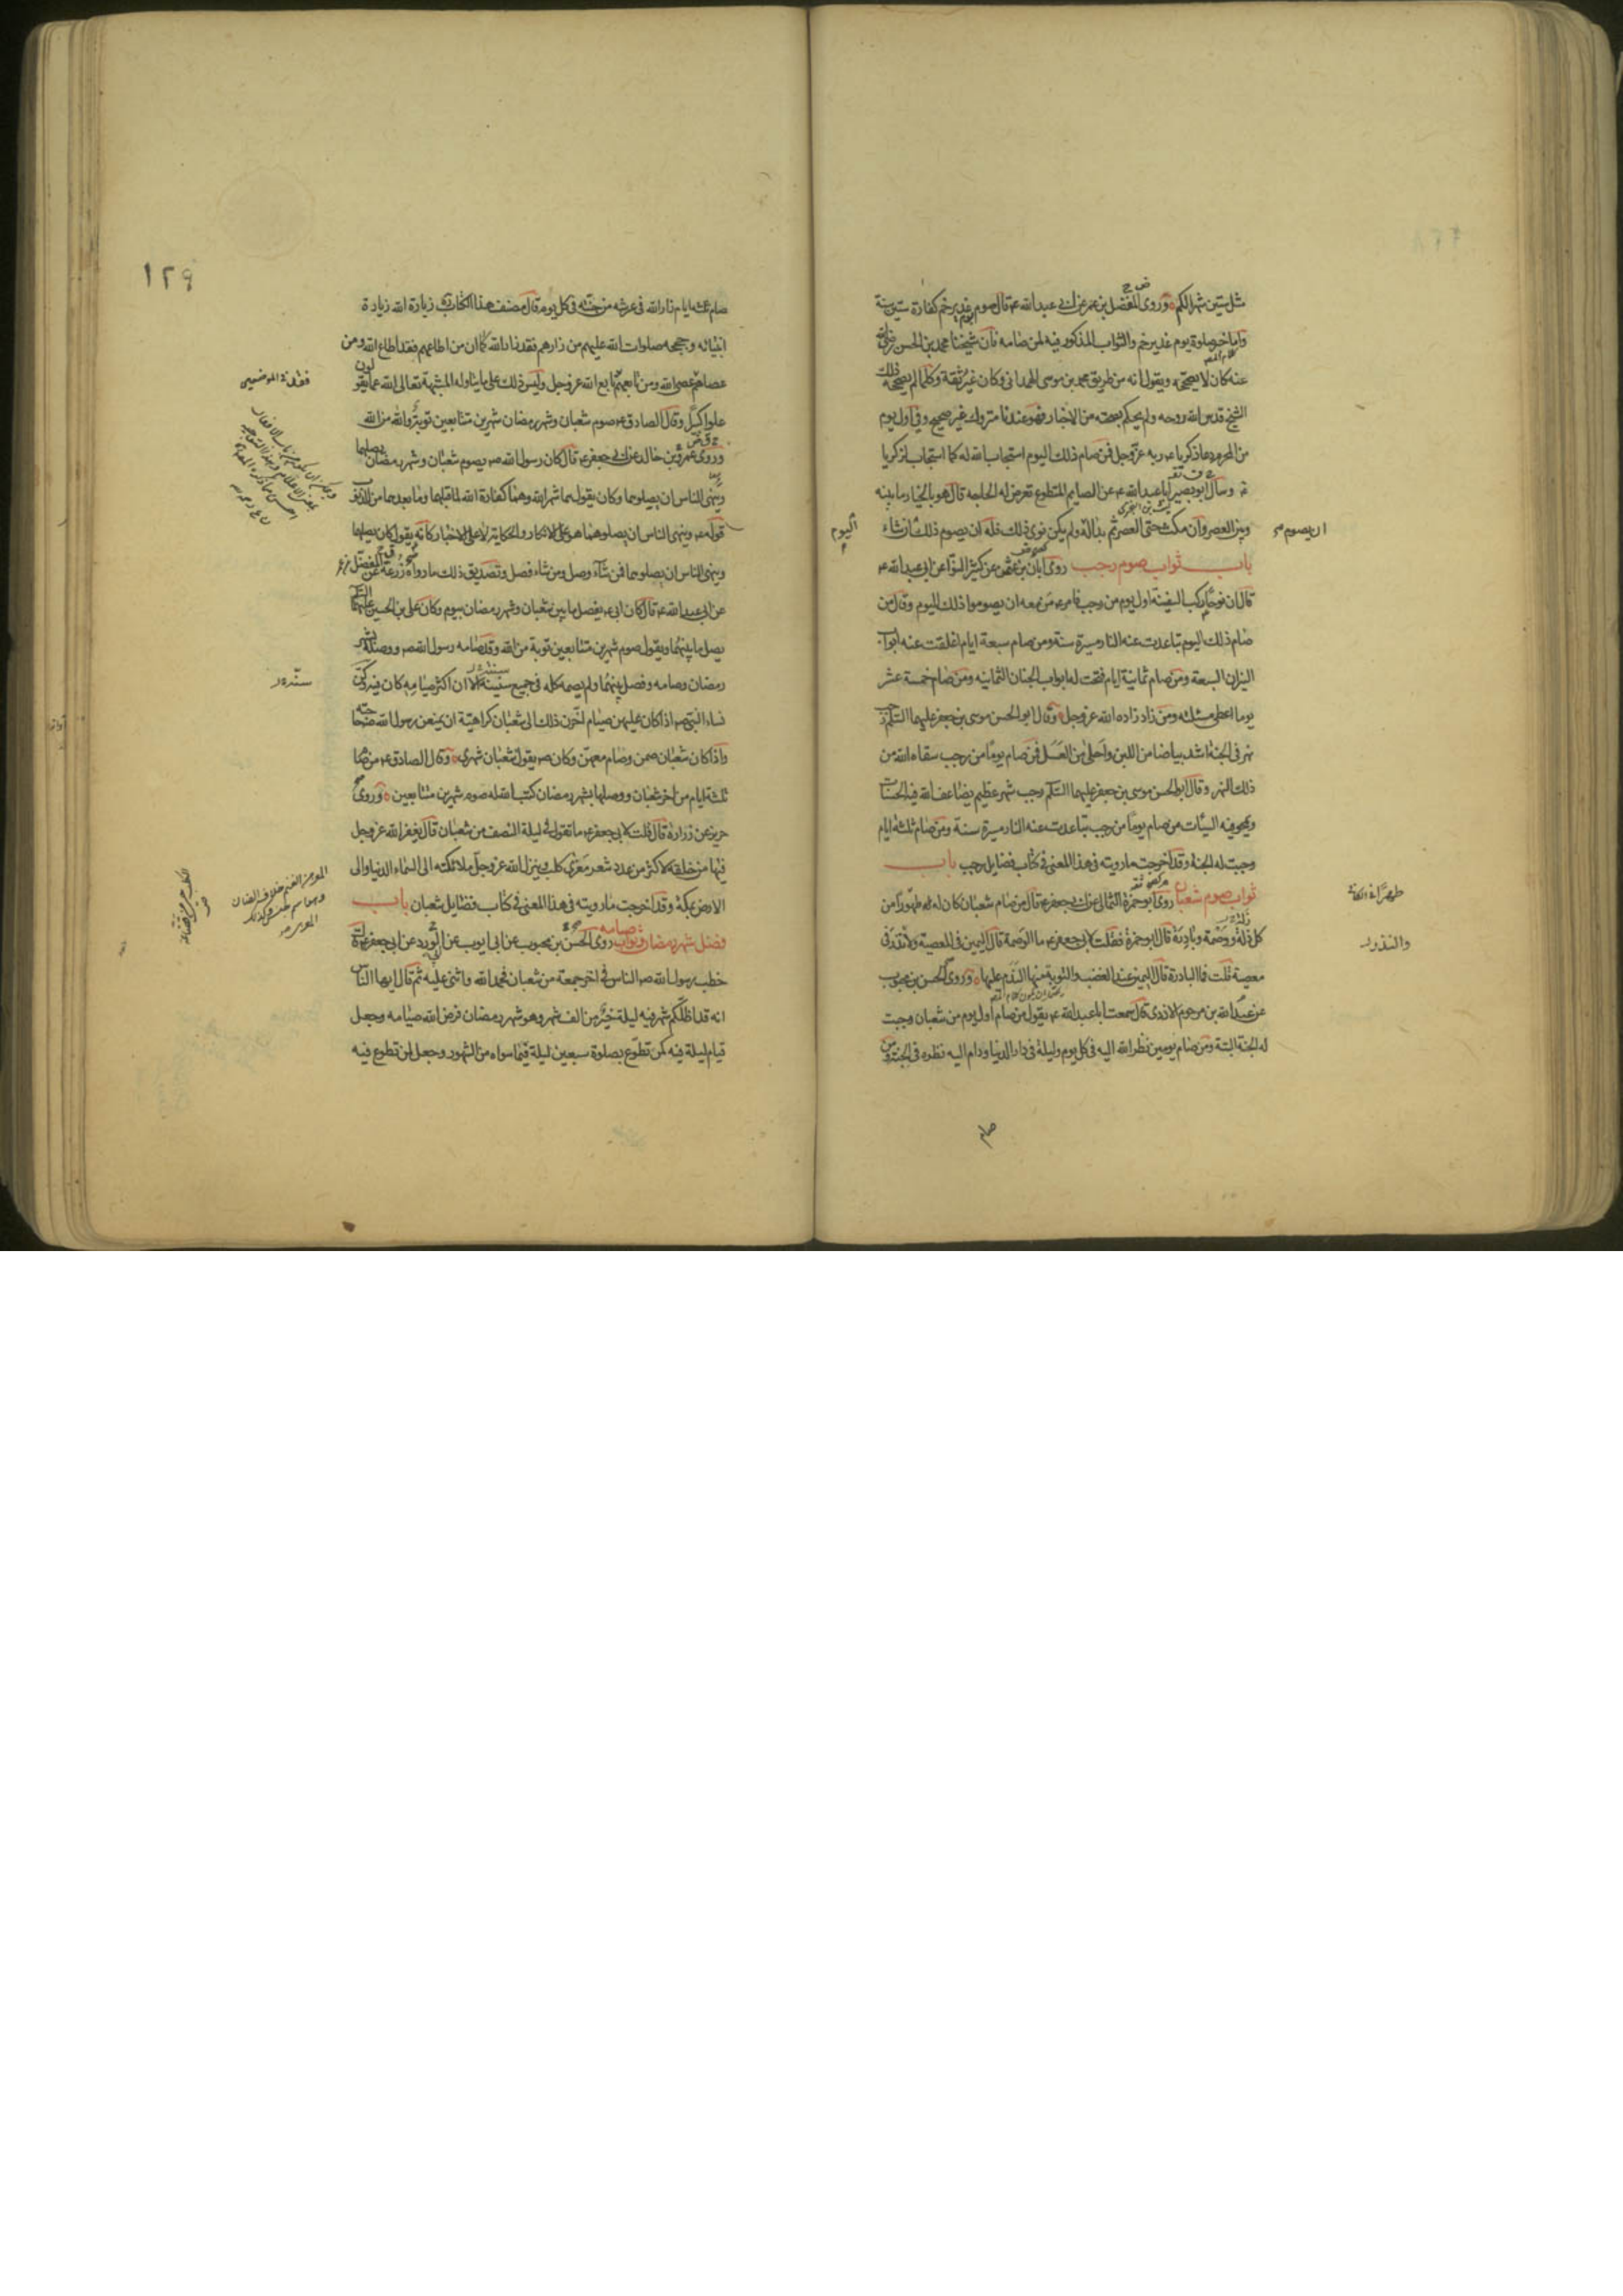 مثل ستين شهرا لكم وروى المفضل بن عمر عن ابى عبدالله ع قال صوم يوم غدير خم كفارة ستين سنة
واما خبر صلوة يوم غدير خم والثواب المذكور فيه لمن صامه فان شيخنا محمد بن الحسن رضى الله
عنه كان لا يصححه ويقول انه من طريق محمد بن موسى الهمدانى وكان غير ثقة وكلما لم يصححه ذلك
الشيخ قدس الله روحه ولم يحكم بصحته من الاخبار فهو عندنا متروك غير صحيح وفى اول يوم
من المحرم دعا زكريا ع ربه عز وجل فمن صام ذلك اليوم استجاب الله له كما استجاب لزكريا
ع وسأل ابو بصير ابا عبدالله ع عن الصايم المتطوع تعرض له الحاجة قال هو بالخيار ما بينه
وبين العصر وان مكث حتى العصر ثم بدا له ولم يكن نوى ذلك فله ان يصوم ذلك ان شاء
اليوم
ان يصوم
باب ثواب صوم رجب روى ابان بن عثمن عن كثير النوا عن ابى عبدالله ع
قال ان نوحا ركب السفينة اول يوم من رجب فامر ع من معه ان يصوموا ذلك اليوم وقال من
صام ذلك اليوم تباعدت عنه النار مسيرة سنة ومن صام سبعة ايام اغلقت عنه ابواب
النيران السبعة ومن صام ثمانية ايام فتحت له ابواب الجنان الثمانيه ومن صام خمسة عشر
يوما اعطى مسئلته ومن زاد زاده الله عز وجل وقال ابو الحسن موسى بن جعفر عليهما السلم رجب
نهر فى الجنة اشد بياضا من اللبن واحلى من العسل فمن صام يوما من رجب سقاه الله من
ذلك النهر وقال ابو الحسن موسى بن جعفر عليهما السلم رجب شهر عظيم يضاعف الله فيه الحسنات
ويمحو فيه السيئات من صام يوما من رجب تباعدت عنه النار مسيرة سنة ومن صام ثلثة ايام
وجبت له الجنة وقد اخرجت ما رويته فى هذا المعنى فى كتاب فضايل رجب باب
ثواب صوم شعبان روى ابو حمزة الثمالى عن ابى جعفر ع قال من صام شعبان كان له طهورا من
كل زلة ووصمة وبادرة قال ابو حمزة فقلت لابى جعفر ع ما الوصمة قال اليمين فى المعصية ولا نذر فى
والنذور
معصية قلت فما البادرة قال اليمين عند الغضب والتوبة منها الندم عليها وروى الحسن بن محبوب
عن عبدالله بن مرحوم الازدى قال سمعت ابا عبدالله ع يقول من صام اول يوم من شعبان وجبت
له الجنة البتة ومن صام يومين نظر الله اليه فى كل يوم وليلة فى دار الدنيا ودام اليه نظره فى الجنة ومن
صام
١٢٩
صام ثلثه ايام زار الله فى عرشه من جنته فى كل يوم قال مصنف هذا الكتاب ره زيارة الله زيارة
انبيائه وحججه صلوات الله عليهم من زارهم فقد زار الله كما ان من اطاعهم فقد اطاع الله ومن
عصاهم عصى الله ومن تابعهم تابع الله عز وجل وليس ذلك على ما يتأوله المشبهة تعالى الله عما يقولون
علوا كبيرا وقال الصادق ع صوم شعبان وشهر رمضان شهرين متتابعين توبة والله من الله
وروى عمرو بن خالد عن ابى جعفر ع قال كان رسول الله ص يصوم شعبان وشهر رمضان يصلهما
وينهى الناس ان يصلوهما وكان يقول هما شهر الله وهما كفارة الله لما قبلهما وما بعدهما من الذنوب
قوله ع وينهى الناس ان يصلوهما هو على الانكار والحكاية لا على الاخبار كانه يقول كان يصلهما
وينهى الناس ان يصلوهما فمن شاء وصل ومن شاء فصل وتصديق ذلك ما رواه زرعة عن المفضل بن عمر
عن ابى عبدالله ع قال كان ابى ع يفصل ما بين شعبان وشهر رمضان بيوم وكان على بن الحسين عليهما السلم
يصل ما بينهما ويقول صوم شهرين متتابعين توبة من الله وقد صامه رسول الله ص ووصله بشهر
رمضان وصامه وفصل بينهما ولم يصمه كله فى جميع سنينه الا ان اكثر صيامه كان فيه وكن
نساء النبى ص اذا كان عليهن صيام اخرن ذلك الى شعبان كراهية ان يمنعن رسول الله ص حاجته
واذا كان شعبان صمن وصام معهن وكان ص يقول شعبان شهرى وقال الصادق ع من صام
ثلثة ايام من اخر شعبان ووصلها بشهر رمضان كتب الله له صوم شهرين متتابعين وروى
حريز عن زرارة قال قلت لابى جعفر ع ما تقول فى ليلة النصف من شعبان قال يغفر الله عز وجل
فيها من خلقه لاكثر من عدد شعر معزى كلب وينزل الله عز وجل ملائكته الى السماء الدنيا والى
الارض بمكة وقد اخرجت ما رويته فى هذا المعنى فى كتاب فضايل شعبان باب
فضل شهر رمضان وثواب صيامه روى الحسن بن محبوب عن ابى ايوب عن ابى الورد عن ابى جعفر ع قال
خطب رسول الله ص الناس فى اخر جمعة من شعبان فحمد الله واثنى عليه ثم قال ايها الناس
انه قد اظلكم شهر فيه ليلة خير من الف شهر وهو شهر رمضان فرض الله صيامه وجعل
قيام ليلة فيه كمن تطوع بصلوة سبعين ليلة فيما سواه من الشهور وجعل لمن تطوع فيه